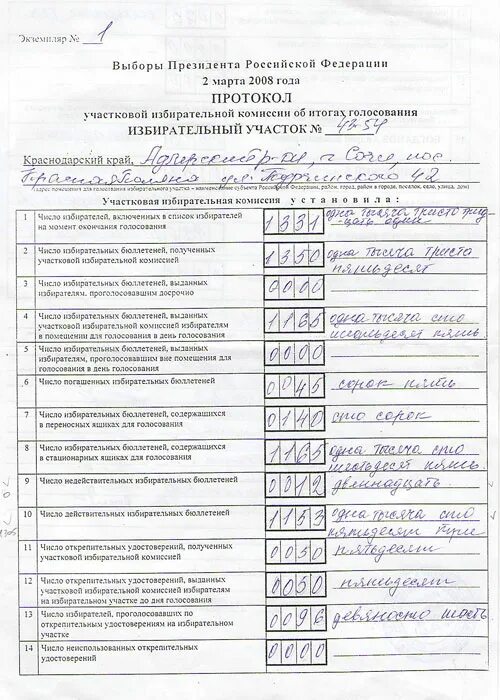 Экземпляр № 1
Выборы Президента Российской Федерации
2 марта 2008 года
ПРОТОКОЛ
участковой избирательной комиссии об итогах голосования
ИЗБИРАТЕЛЬНЫЙ УЧАСТОК № 43-54
Краснодарский край, Адлерский р-он, г. Сочи, пос.
Красная Поляна ул. 42
(адрес помещения для голосования избирательного участка – наименование субъекта Российской Федерации, район, город, район в городе, поселок, село, улица, дом)
Участковая избирательная комиссия установила:
1 Число избирателей, включенных в список избирателей на момент окончания голосования 1331 одна тысяча тристо тридцать один
2 Число избирательных бюллетеней, полученных участковой избирательной комиссией 1350 одна тысяча триста пятьдесят
3 Число избирательных бюллетеней, выданных избирателям, проголосовавшим досрочно 0000
4 Число избирательных бюллетеней, выданных участковой избирательной комиссией избирателям в помещении для голосования в день голосования 1165 одна тысяча сто шестьдесят пять
5 Число избирательных бюллетеней, выданных избирателям, проголосовавшим вне помещения для голосования в день голосования 0000
6 Число погашенных избирательных бюллетеней 0045 сорок пять
7 Число избирательных бюллетеней, содержащихся в переносных ящиках для голосования 0140 сто сорок
8 Число избирательных бюллетеней, содержащихся в стационарных ящиках для голосования 1165 одна тысяча сто шестьдесят пять
9 Число недействительных избирательных бюллетеней 0012 двенадцать
10 Число действительных избирательных бюллетеней 1153 одна тысяча сто пятьдесят три
11 Число открепительных удостоверений, полученных участковой избирательной комиссией 0050 пятьдесят
12 Число открепительных удостоверений, выданных участковой избирательной комиссией избирателям на избирательном участке до дня голосования 0050 пятьдесят
13 Число избирателей, проголосовавших по открепительным удостоверениям на избирательном участке 0096 девяносто шесть
14 Число неиспользованных открепительных удостоверений 0000